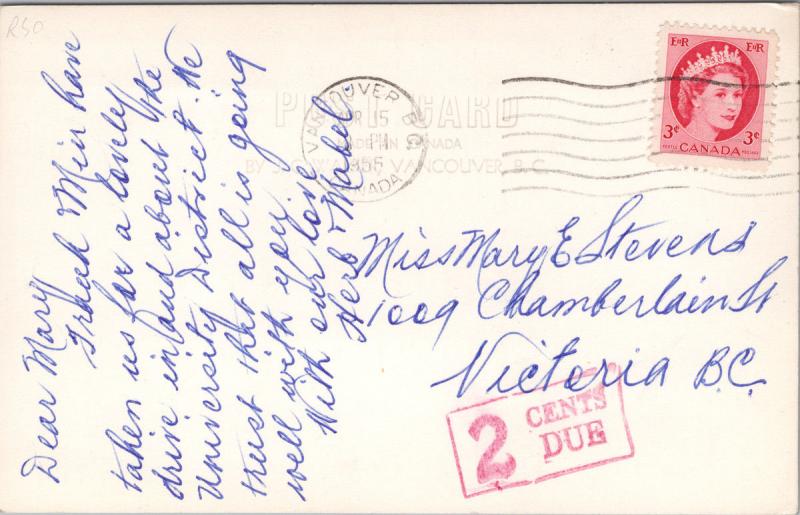 R50
Dear Mary
Frank & Min have
taken us for a lovely
drive in and about the
University District. We
trust that all is going
well with you.
With our love
Herb & Mabel.
POST CARD
MADE IN CANADA
VANCOUVER, B.C.
VANCOUVER B.C.
15
PM
1955
CANADA
EIIR EIIR
3¢ 3¢
CANADA
POSTES POSTAGE
Miss Mary E Stevens
1009 Chamberlain St
Victoria B.C.
2 CENTS
DUE